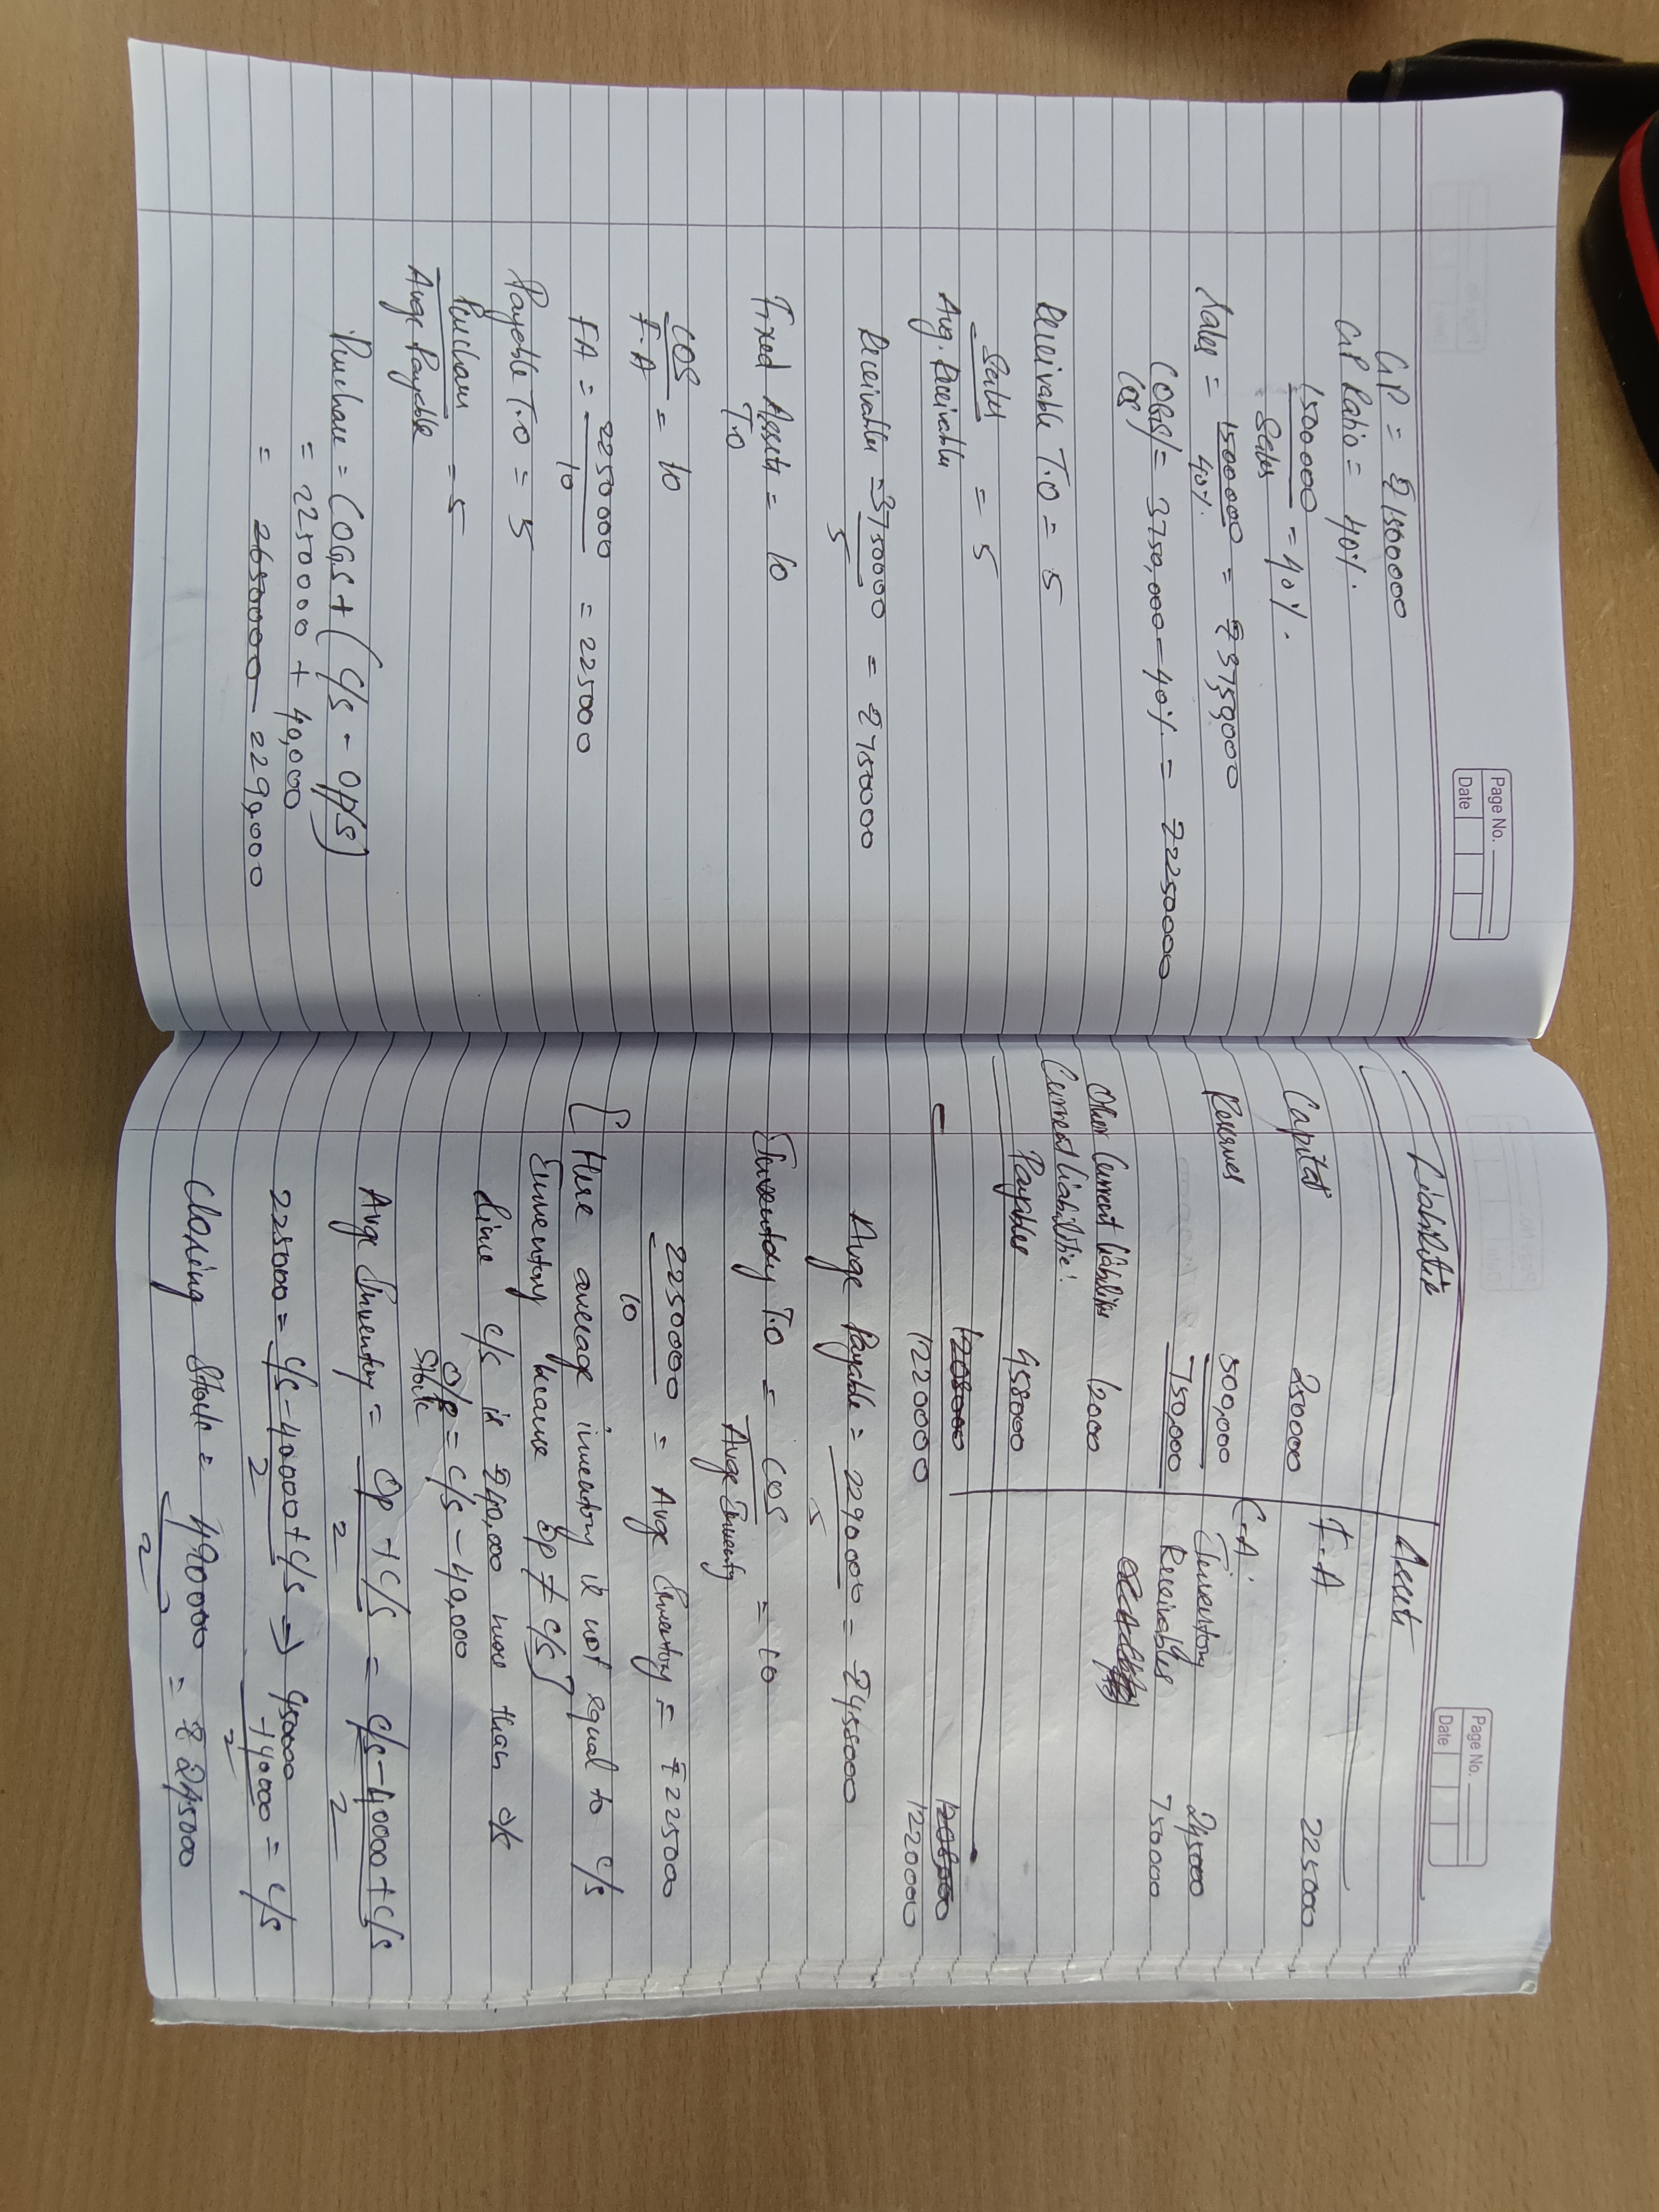 Page No.
Date
GP = ₹ 1500000
GP Ratio = 40%.
1500000 / Sales = 40%.
Sales = 1500000 / 40% = ₹ 3750,000
COGS/ COS = 3750,000 - 40% = ₹ 2250000
Receivable T.O = 5
Sales / Avg. Receivable = 5
Receivables = 3750000 / 5 = ₹ 750000
Fixed Assets T.O = 10
COS / F.A = 10
FA = 2250000 / 10 = 225000
Payable T.O = 5
Purchase / Avge Payable = 5
Purchase = COGS + (C/S - Op/S)
= 2250000 + 40,000
= 2650000 2290,000
Page No.
Date
Liabilitie Assets
Capital 250000 F.A 225000
Reserves 500,000 C.A:
750,000 Inventory 245000
Receivables 750000
Other Current liabilities 12000
Current Liabilitie:
Payables 458000
1208000 1208000
1220000 1220000
Avge Payable = 2290000 / 5 = ₹ 458000
Inventory T.O = COS / Avge Inventy = 10
2250000 / 10 = Avge Inventory = ₹ 225000
{ Here average inventory is not equal to C/S
Inventory because Op ≠ C/S }
Since C/S is ₹40,000 more than O/S
O/S Stock = C/S - 40,000
Avge Inventory = Op + C/S / 2 = C/S - 40000 + C/S / 2
225000 = C/S - 40000 + C/S / 2 ⇒ 450000 + 40000 / 2 = C/S
Closing Stock = 490000 / 2 = ₹ 245000